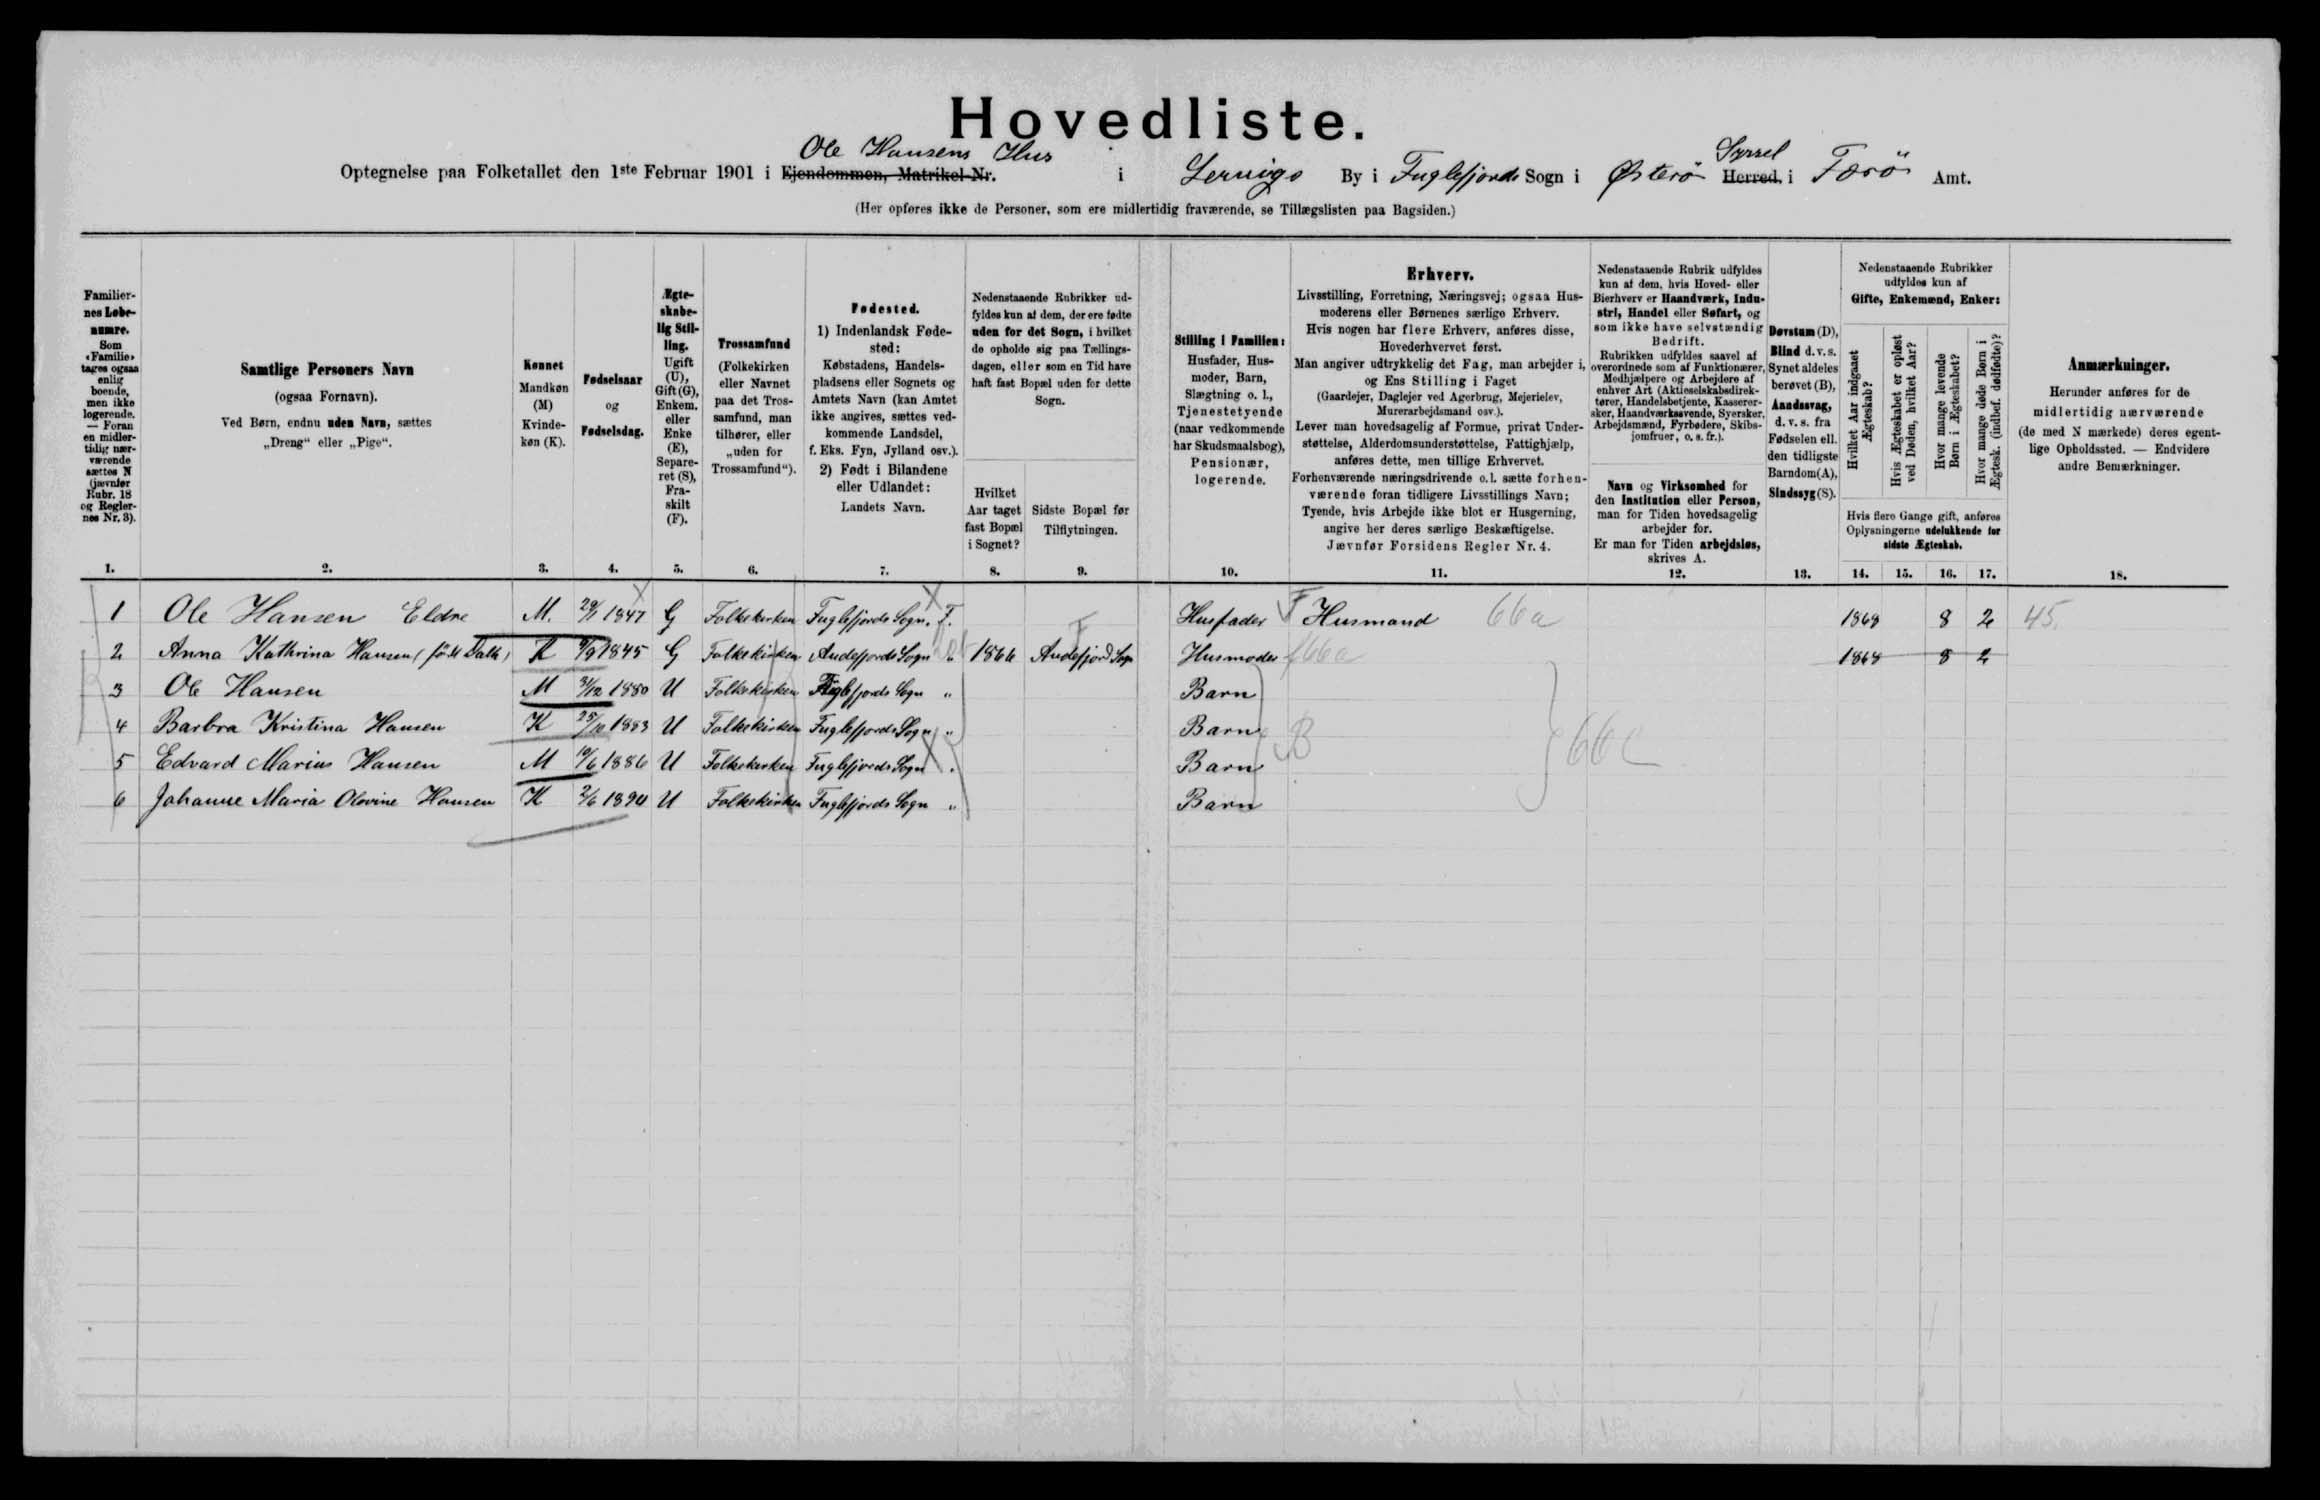 Hovedliste.
Ole Hansens Hus
Syssel
Optegnelse paa Folketallet den 1ste Februar 1901 i Ejendommen, Matrikel-Nr. i Lervigs By i Fuglefjords Sogn i Østerø Herred i Færø Amt.
(Her opføres ikke de Personer, som ere midlertidig fraværende, se Tillægslisten paa Bagsiden.)
Familier-
nes Løbe-
numre.
Som
«Familie»
tages ogsaa
enlig
boende,
men ikke
logerende.
— Foran
en midler-
tidig nær-
værende
sættes N
(jævnfør
Rubr. 18
og Regler-
nes Nr. 3).
1.
Samtlige Personers Navn
(ogsaa Fornavn).
Ved Børn, endnu uden Navn, sættes
„Dreng“ eller „Pige“.
2.
Kønnet
Mandkøn
(M)
Kvinde-
køn (K).
3.
Fødselsaar
og
Fødselsdag.
4.
Ægte-
skabe-
lig Stil-
ling.
Ugift
(U),
Gift (G),
Enkem.
eller
Enke
(E),
Separe-
ret (S),
Fra-
skilt
(F).
5.
Trossamfund
(Folkekirken
eller Navnet
paa det Tros-
samfund, man
tilhører, eller
„uden for
Trossamfund“).
6.
Fødested.
1) Indenlandsk Føde-
sted:
Købstadens, Handels-
pladsens eller Sognets og
Amtets Navn (kan Amtet
ikke angives, sættes ved-
kommende Landsdel,
f. Eks. Fyn, Jylland osv.).
2) Født i Bilandene
eller Udlandet:
Landets Navn.
7.
Nedenstaaende Rubrikker ud-
fyldes kun af dem, der ere fødte
uden for det Sogn, i hvilket
de opholde sig paa Tællings-
dagen, eller som en Tid have
haft fast Bopæl uden for dette
Sogn.
Hvilket
Aar taget
fast Bopæl
i Sognet?
8.
Sidste Bopæl før
Tilflytningen.
9.
Stilling i Familien:
Husfader, Hus-
moder, Barn,
Slægtning o. l.,
Tjenestetyende
(naar vedkommende
har Skudsmaalsbog),
Pensionær,
logerende.
10.
Erhverv.
Livsstilling, Forretning, Næringsvej; ogsaa Hus-
moderens eller Børnenes særlige Erhverv.
Hvis nogen har flere Erhverv, anføres disse,
Hovederhvervet først.
Man angiver udtrykkelig det Fag, man arbejder i,
og Ens Stilling i Faget
(Gaardejer, Daglejer ved Agerbrug, Mejerielev,
Murerarbejdsmand osv.).
Lever man hovedsagelig af Formue, privat Under-
støttelse, Alderdomsunderstøttelse, Fattighjælp,
anføres dette, men tillige Erhvervet.
Forhenværende næringsdrivende o. l. sætte forhen-
værende foran tidligere Livsstillings Navn;
Tyende, hvis Arbejde ikke blot er Husgerning,
angive her deres særlige Beskæftigelse.
Jævnfør Forsidens Regler Nr. 4.
11.
Nedenstaaende Rubrik udfyldes
kun af dem, hvis Hoved- eller
Bierhverv er Haandværk, Indu-
stri, Handel eller Søfart, og
som ikke have selvstændig
Bedrift.
Rubrikken udfyldes saavel af
overordnede som af Funktionærer,
Medhjælpere og Arbejdere af
enhver Art (Aktieselskabsdirek-
tører, Handelsbetjente, Kasserer-
sker, Haandværkssvende, Syersker,
Arbejdsmænd, Fyrbødere, Skibs-
jomfruer, o. s. fr.).
Navn og Virksomhed for
den Institution eller Person,
man for Tiden hovedsagelig
arbejder for.
Er man for Tiden arbejdsløs,
skrives A.
12.
Døvstum (D),
Blind d. v. s.
Synet aldeles
berøvet (B),
Aandssvag,
d. v. s. fra
Fødselen ell.
den tidligste
Barndom (A),
Sindssyg (S).
13.
Nedenstaaende Rubrikker
udfyldes kun af
Gifte, Enkemænd, Enker:
Hvilket Aar indgaaet
Ægteskab?
Hvis Ægteskabet er opløst
ved Døden, hvilket Aar?
Hvor mange levende
Børn i Ægteskabet?
Hvor mange døde Børn i
Ægtesk. (indbef. dødfødte)?
Hvis flere Gange gift, anføres
Oplysningerne udelukkende for
sidste Ægteskab.
14. 15. 16. 17.
Anmærkninger.
Herunder anføres for de
midlertidig nærværende
(de med N mærkede) deres egent-
lige Opholdssted. — Endvidere
andre Bemærkninger.
18.
1 Ole Hansen Eldre M. 29/1 1847 G Folkekirken Fuglefjords Sogn. F. Husfader F Husmand 66a 1868 8 2 45.
2 Anna Kathrina Hansen (født Dalh) K 9/9 1845 G Folkekirken Andefjords Sogn „ 1866 Andefjord Sogn F Husmoder f66a 1868 8 2
3 Ole Hansen M 31/12 1880 U Folkekirken Fuglefjords Sogn „ Barn
4 Barbra Kristina Hansen K 25/10 1883 U Folkekirken Fuglefjords Sogn „ Barn B 66c
5 Edvard Marius Hansen M 10/6 1886 U Folkekirken Fuglefjords Sogn „ Barn
6 Johanne Maria Olevine Hansen K 2/6 1890 U Folkekirken Fuglefjords Sogn „ Barn